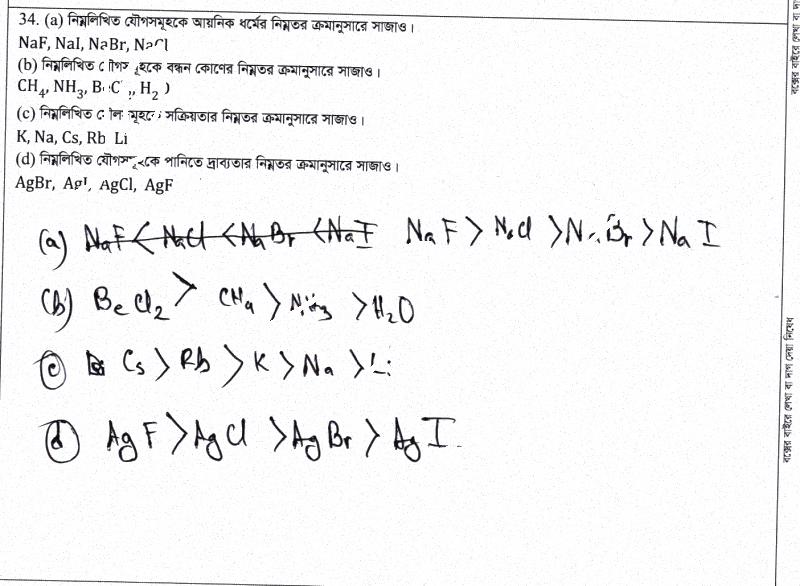 34. (a) নিম্নলিখিত যৌগসমূহকে আয়নিক ধর্মের নিম্নতর ক্রমানুসারে সাজাও।
NaF, NaI, NaBr, NaCl
(b) নিম্নলিখিত যৌগসমূহকে বন্ধন কোণের নিম্নতর ক্রমানুসারে সাজাও।
CH₄, NH₃,
(c) নিম্নলিখিত সক্রিয়তার নিম্নতর ক্রমানুসারে সাজাও।
K, Na, Cs, Rb Li
(d) নিম্নলিখিত যৌগসমূহকে পানিতে দ্রাব্যতার নিম্নতর ক্রমানুসারে সাজাও।
AgBr, AgI, AgCl, AgF
(a) NaF < NaCl < NaBr < NaI NaF > NaCl > NaBr > NaI
(b) BeCl₂ > CH₄ > NH₃ > H₂O
(c) Cs > Rb > K > Na > Li
(d) AgF > AgCl > AgBr > AgI
বক্সের বাইরে লেখা বা দাগ দেয়া নিষেধ
বক্সের বাইরে লেখা বা দা